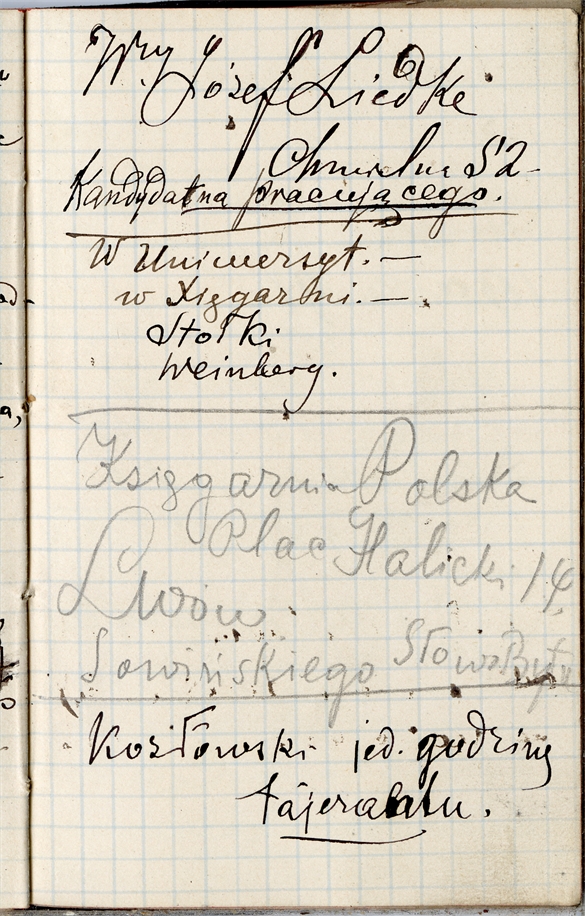 Wny Józef Liedke
Chmielna 52
Kandydat na pracującego.
W Uniwersyt. —
w Xięgarni. —
Stołki
Weinberg.
Księgarnia Polska
Plac Halicki 14
Lwów
Sowińskiego Słowo
Kozłowski jed. godzinę